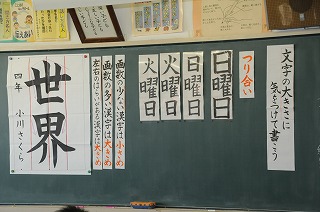 文字の大きさに
気をつけて書こう
つり合い
日曜日
日曜日
火曜日
火曜日
画数の少ない漢字は小さめ
画数の多い漢字は大きめ
世界
四年 小川さくら